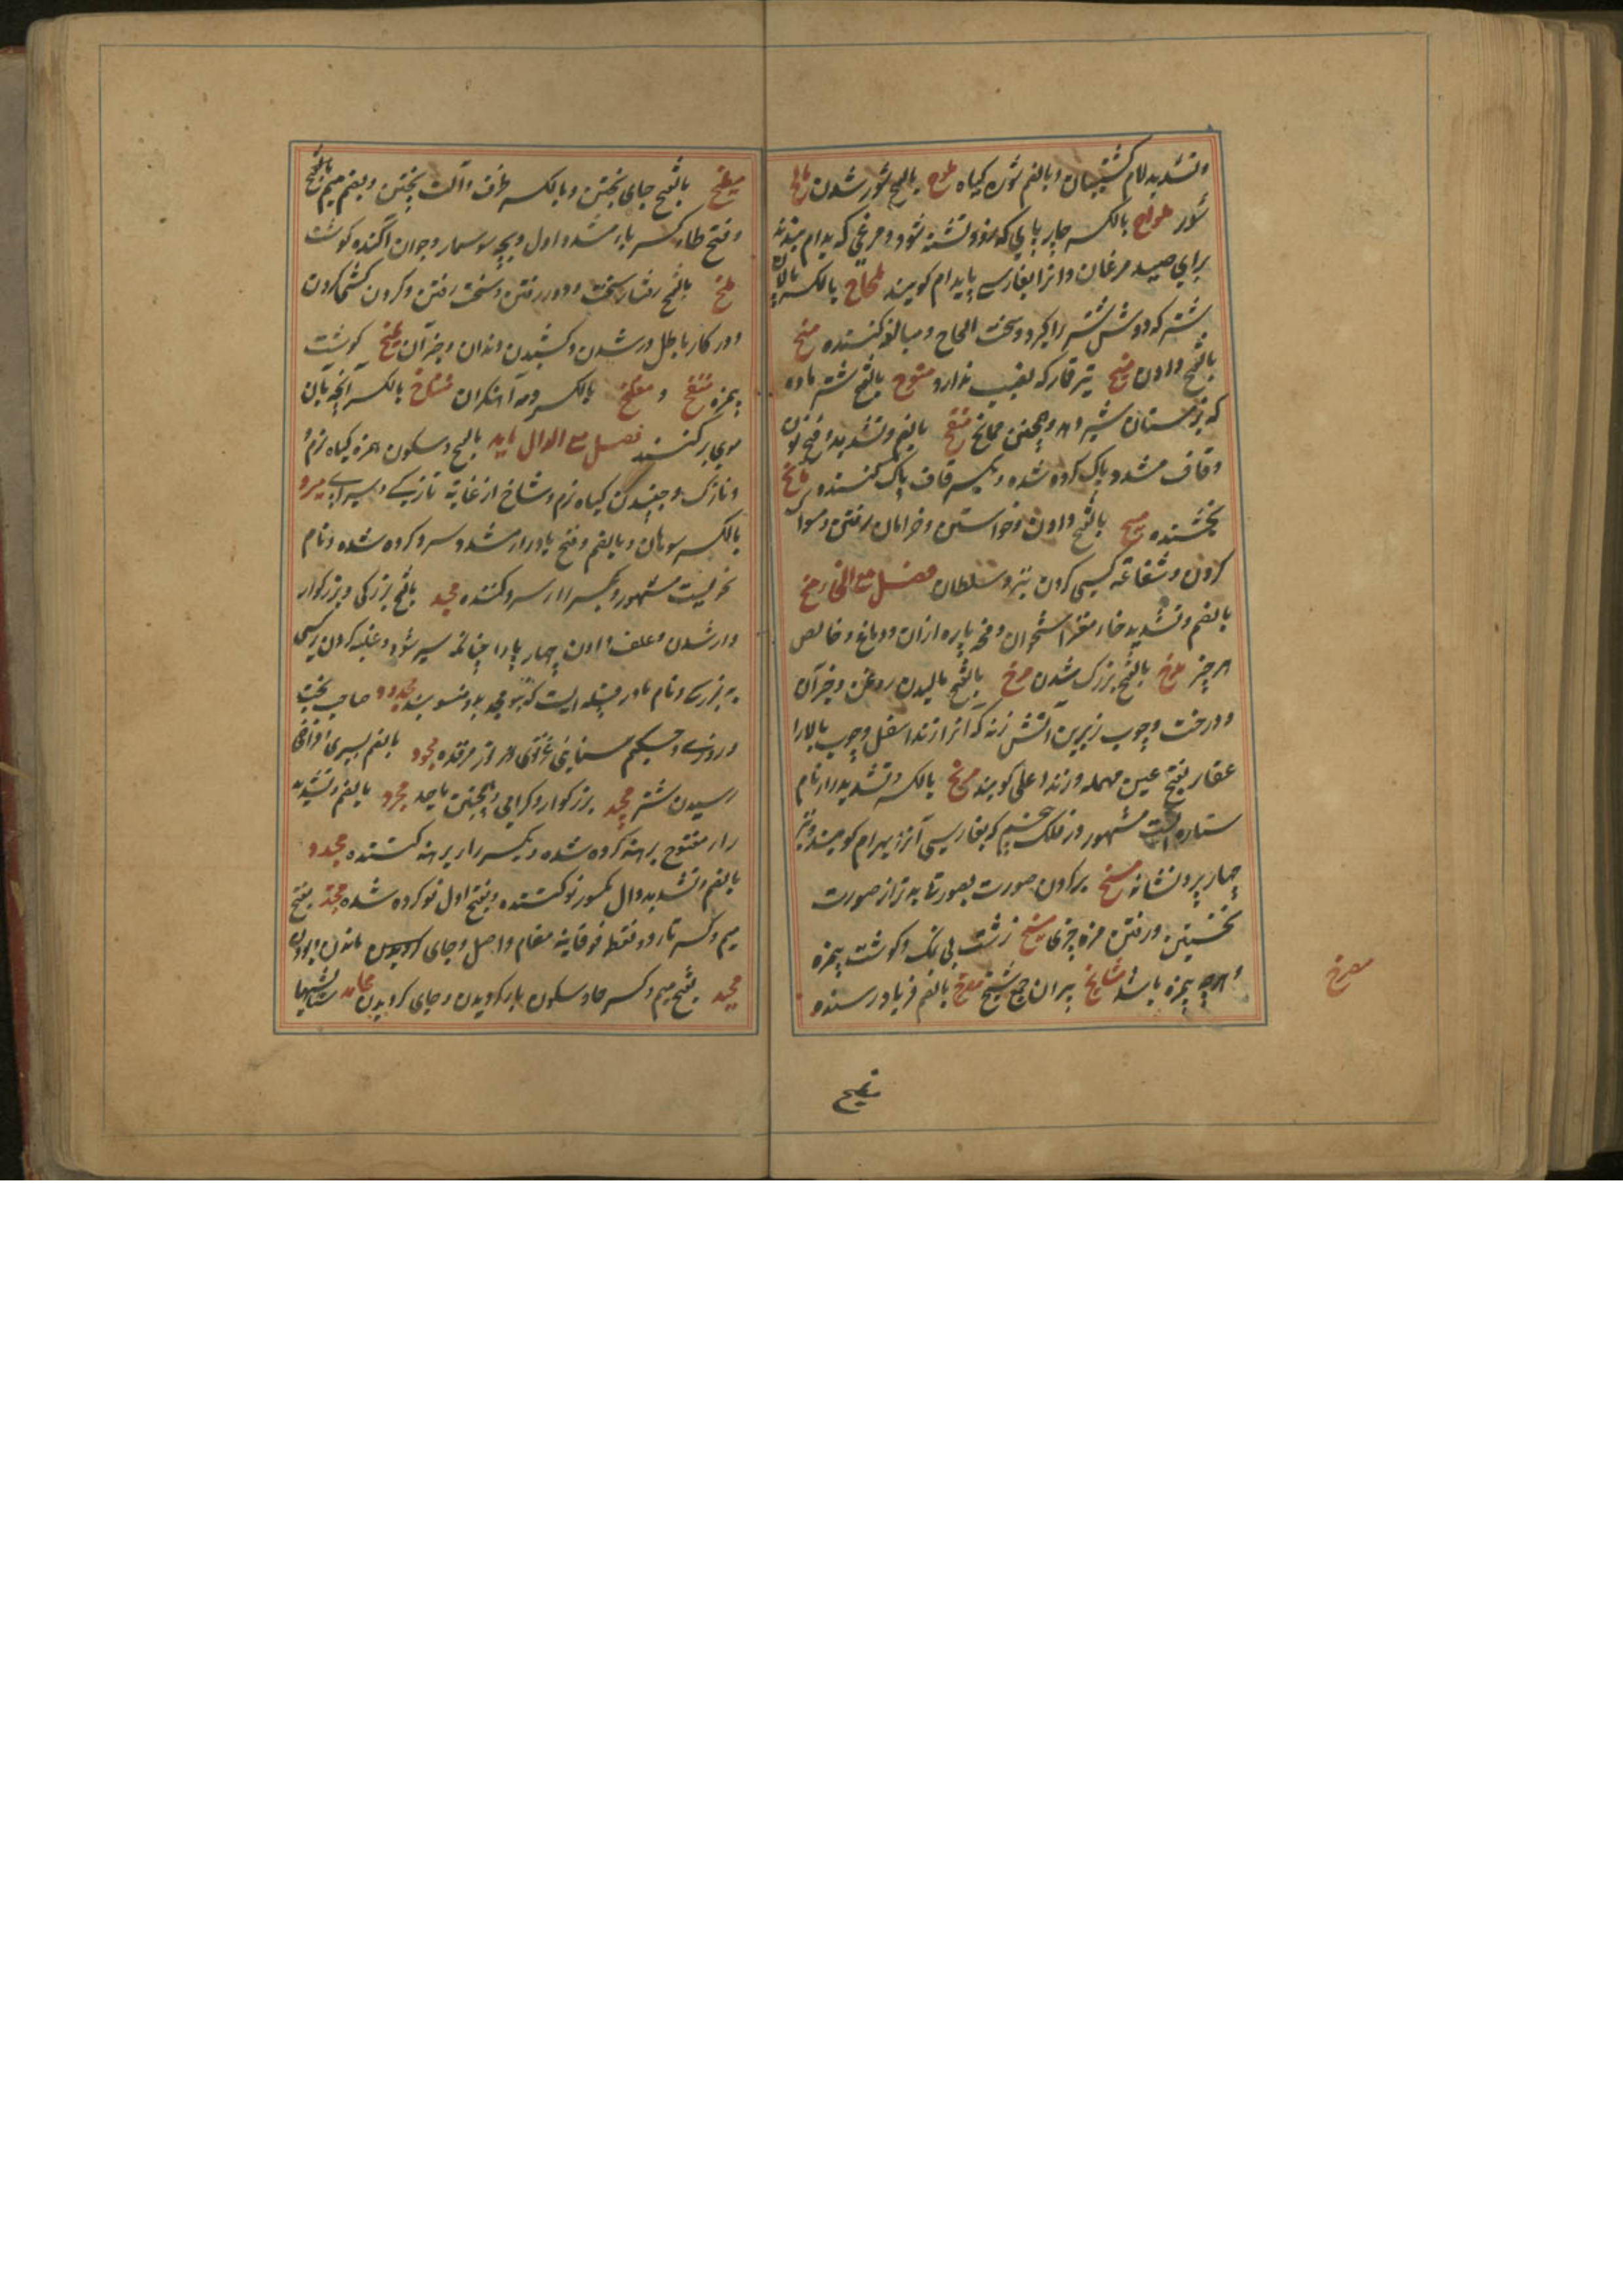 وتشدید لام کشتیبان وبالضم شوره کیاه ملوح بالفتح شور شدن مالح
شور ملواح بالکسر چارپایی که زود تشنه شود و مرغی که بدام بندند
برای صید مرغان وانرا بفارسی پایدام کویند ملحاح بالکسر پالان
شتر که دوش شتر را کیرد وسخت الحاح ومبالغه کننده منح
بالفتح دادن منیح تیر قمار که نصیب ندارد منوح بالفتح شتر ماده
که بزمستان شیر دهد وهمچنین ممانح منقح بالضم وتشدید وفتح نون
وقاف مشدد پاک کرده شده وبکسر قاف پاک کننده مانح
بخشنده میح بالفتح دادن وخواستن وخرامان رفتن ومسواک
کردن وشفاعة کسی کردن نزد سلطان فصل مع الخاء مخ
بالضم وتشدید خاء مغز استخوان ومخه پاره ازان ودماغ وخالص
هر چیز مدخ بالفتح بزرک شدن مرخ بالفتح مالیدن روغن وجز آن
ودرخت وچوب زیرین آتش زنه که انرا زند اسفل وچوب بالا را
عفار بفتح عین مهمله وزند اعلی کویند مریخ بالکسر وتشدید راء نام
ستاره ایست مشهور در فلک پنجم که بفارسی آنرا بهرام کویند وتیر
چهار پر ونشانه مسخ برکردن صورت بصورتی بدتر از صورت
نخستین ورفتن مزه چیزی مسیخ زشت بی نمک وکوشت بیمزه
وهرچه بیمزه باشد مشایخ پیران جمع شیخ مصرخ بالضم فریاد رسنده
مصرخ
مطبخ
مطبخ بالفتح جای پختن وبالکسر ظرف وآلت پختن وبضم میم
وفتح طاء وکسر باء مشدد اول وبچه سوسمار وجوان آکنده کوشت
ملخ بالفتح رفتار سخت ودور رفتن وسخت رفتن وکردن
ودر کار باطل در شدن وکشیدن دندان وجز آن ملیخ کوشت
بیمزه منفخ و منفاخ بالکسر دمه آهنکران منتاخ بالکسر آنچه بان
موی برکنند فصل مع الدال ماید بالفتح وسکون همزه کیاه نرم
ونازک وجنبیدن کیاه نرم وشاخ از غایة تازکی وسیرابی مبرد
بالکسر سوهان وبالضم وفتح با وراء مشدد سرد کرده شده ونام
نحویست مشهور وبکسر راء سرد کننده مجد بالفتح بزرکی وبزرکوار
وار شدن وعلف دادن چهار پا را چنانکه سیر شود وغلبه کردن بر کسی
به بزرکی ونام مادر قبیله ایست که بنو مجد بدو منسوبند مجدود صاحب بخت
وروزی وحکیم سنایی غزنوی نور مرقده مجود بالضم
رسیدن شتر مجید بزرکوار وکرامی وهمچنین ماجد مجرد بالضم وتشدید
راء مفتوح برهنه کرده شده وبکسر راء برهنه کننده مجدد
بالضم وتشدید دال مکسور نو کننده وبفتح اول نو کرده شده محتد بفتح
میم وکسر تاء دو نقطه فوقانیه مقام واصل وجای
محید بفتح میم وکسر حا وسکون یا کردیدن وجای کردیدن محامد ستایشها